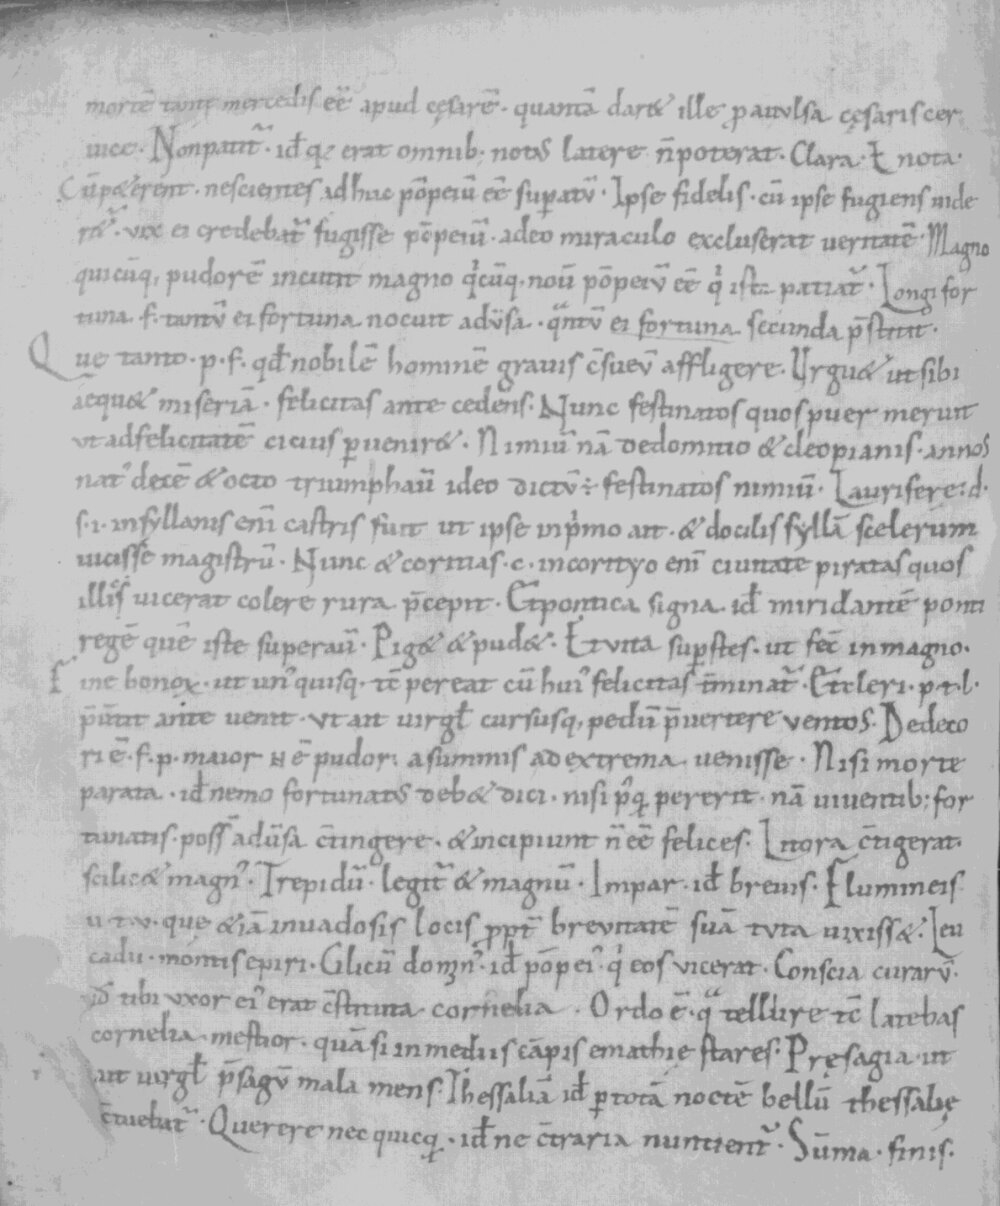 mortē tantę mercedis eē apud cęsarē · quantā dar& ille p auulsa cęsaris cer
uice · Nonpatit᷑ · id̄ q; erat omnib; notus latere n̄ poterat · Clara · & nota ·
Cūpet erent · nescientes adhuc pōpeiū eē supatū · Ipse fidelis · cū ipse fugiens uide
r& · uix ei credebat᷑ fugisse pōpeiū · adeo miraculo excluserat ueritatē · Magno
quicūq; pudorē incutit magno q̇cūq; nouit pōpeiū eē q̇ ista patiat᷑ · Longi for
tuna · f · tantū ei fortuna nocuit aduersa · q̄ntū ei fortuna secunda p̄stitit ·
Que tanto · p · f · qd̄ nobilē hominē grauis c̄sueuit affligere · Vrgu& ut sibi
ãequ& miseriā · felicitas antecedens · Nunc festinatos quos puer meruit
ut ad felicitatē cicius puenir& · Nimiū nā dedomitio & cleopianis · annos
nat᷒ decē & octo triumphauit ideo dictū · festinatos nimiū · Laurifere · d ·
s · i · in syllanis enī castris fuit ut ipse inpˈmo ait · & docilis syllā scelerum
uicisse magistrū · Nunc & coritias · c · incorityo enī ciuitate piratas quos
illis uicerat colere rura p̄cepit · Et pontica signa · id̄ miridantē ponti
regē quē iste superauit · Pig& & pud& · Et uita supstes · ut fec̄ inmagno ·
Fine bonoꝝ · ut un᷒quisq; tc̄ pereat cū hui᷒ felicitas t̄minat᷑ · Et celeri · p · t · l ·
p̄uenit ante uenit · Vt ait uirgł cursusq; pedū p̄uertere ventos · Dedeco
ri ē · f · p · maior n̄ ē pudor · a summis ad extrema uenisse · Nisi morte
parata · id̄ nemo fortunatus deb& dici · nisi p᷒q̄ pererit · nā uiuentib; for
tunatis · poss̄ aduersa c̄tingere · & incipiunt n̄ eē felices · Litora c̄tigerat ·
scilic& magn᷒ · Trepidū · legit᷑ & magnū · Impar · id̄ breuis · Flumineis
u · t · v · que &iā inuadosis locis ppt̄ breuitatē suā tuta uixiss& · Leu
cadii · montis epiri · Glicū domin᷒ · id̄ pōpei᷒ · q̇ eos uicerat · Conscia curarū ·
id̄ ubi uxor ei᷒ erat c̄stituta cornelia · Ordo ē · q̄ tellure tc̄ latebas
cornelia · mestior · quā si in mediis cāpis emathie stares · Pręsagia · ut
ait uirgł p̄sagū mala mens · Thessaliā id̄ p totā noctē bellū thessalię
c̄tuebat᷑ · Querere nec quicq̄ · id̄ ne c̄traria nuntient᷑ · Sūma · finis ·